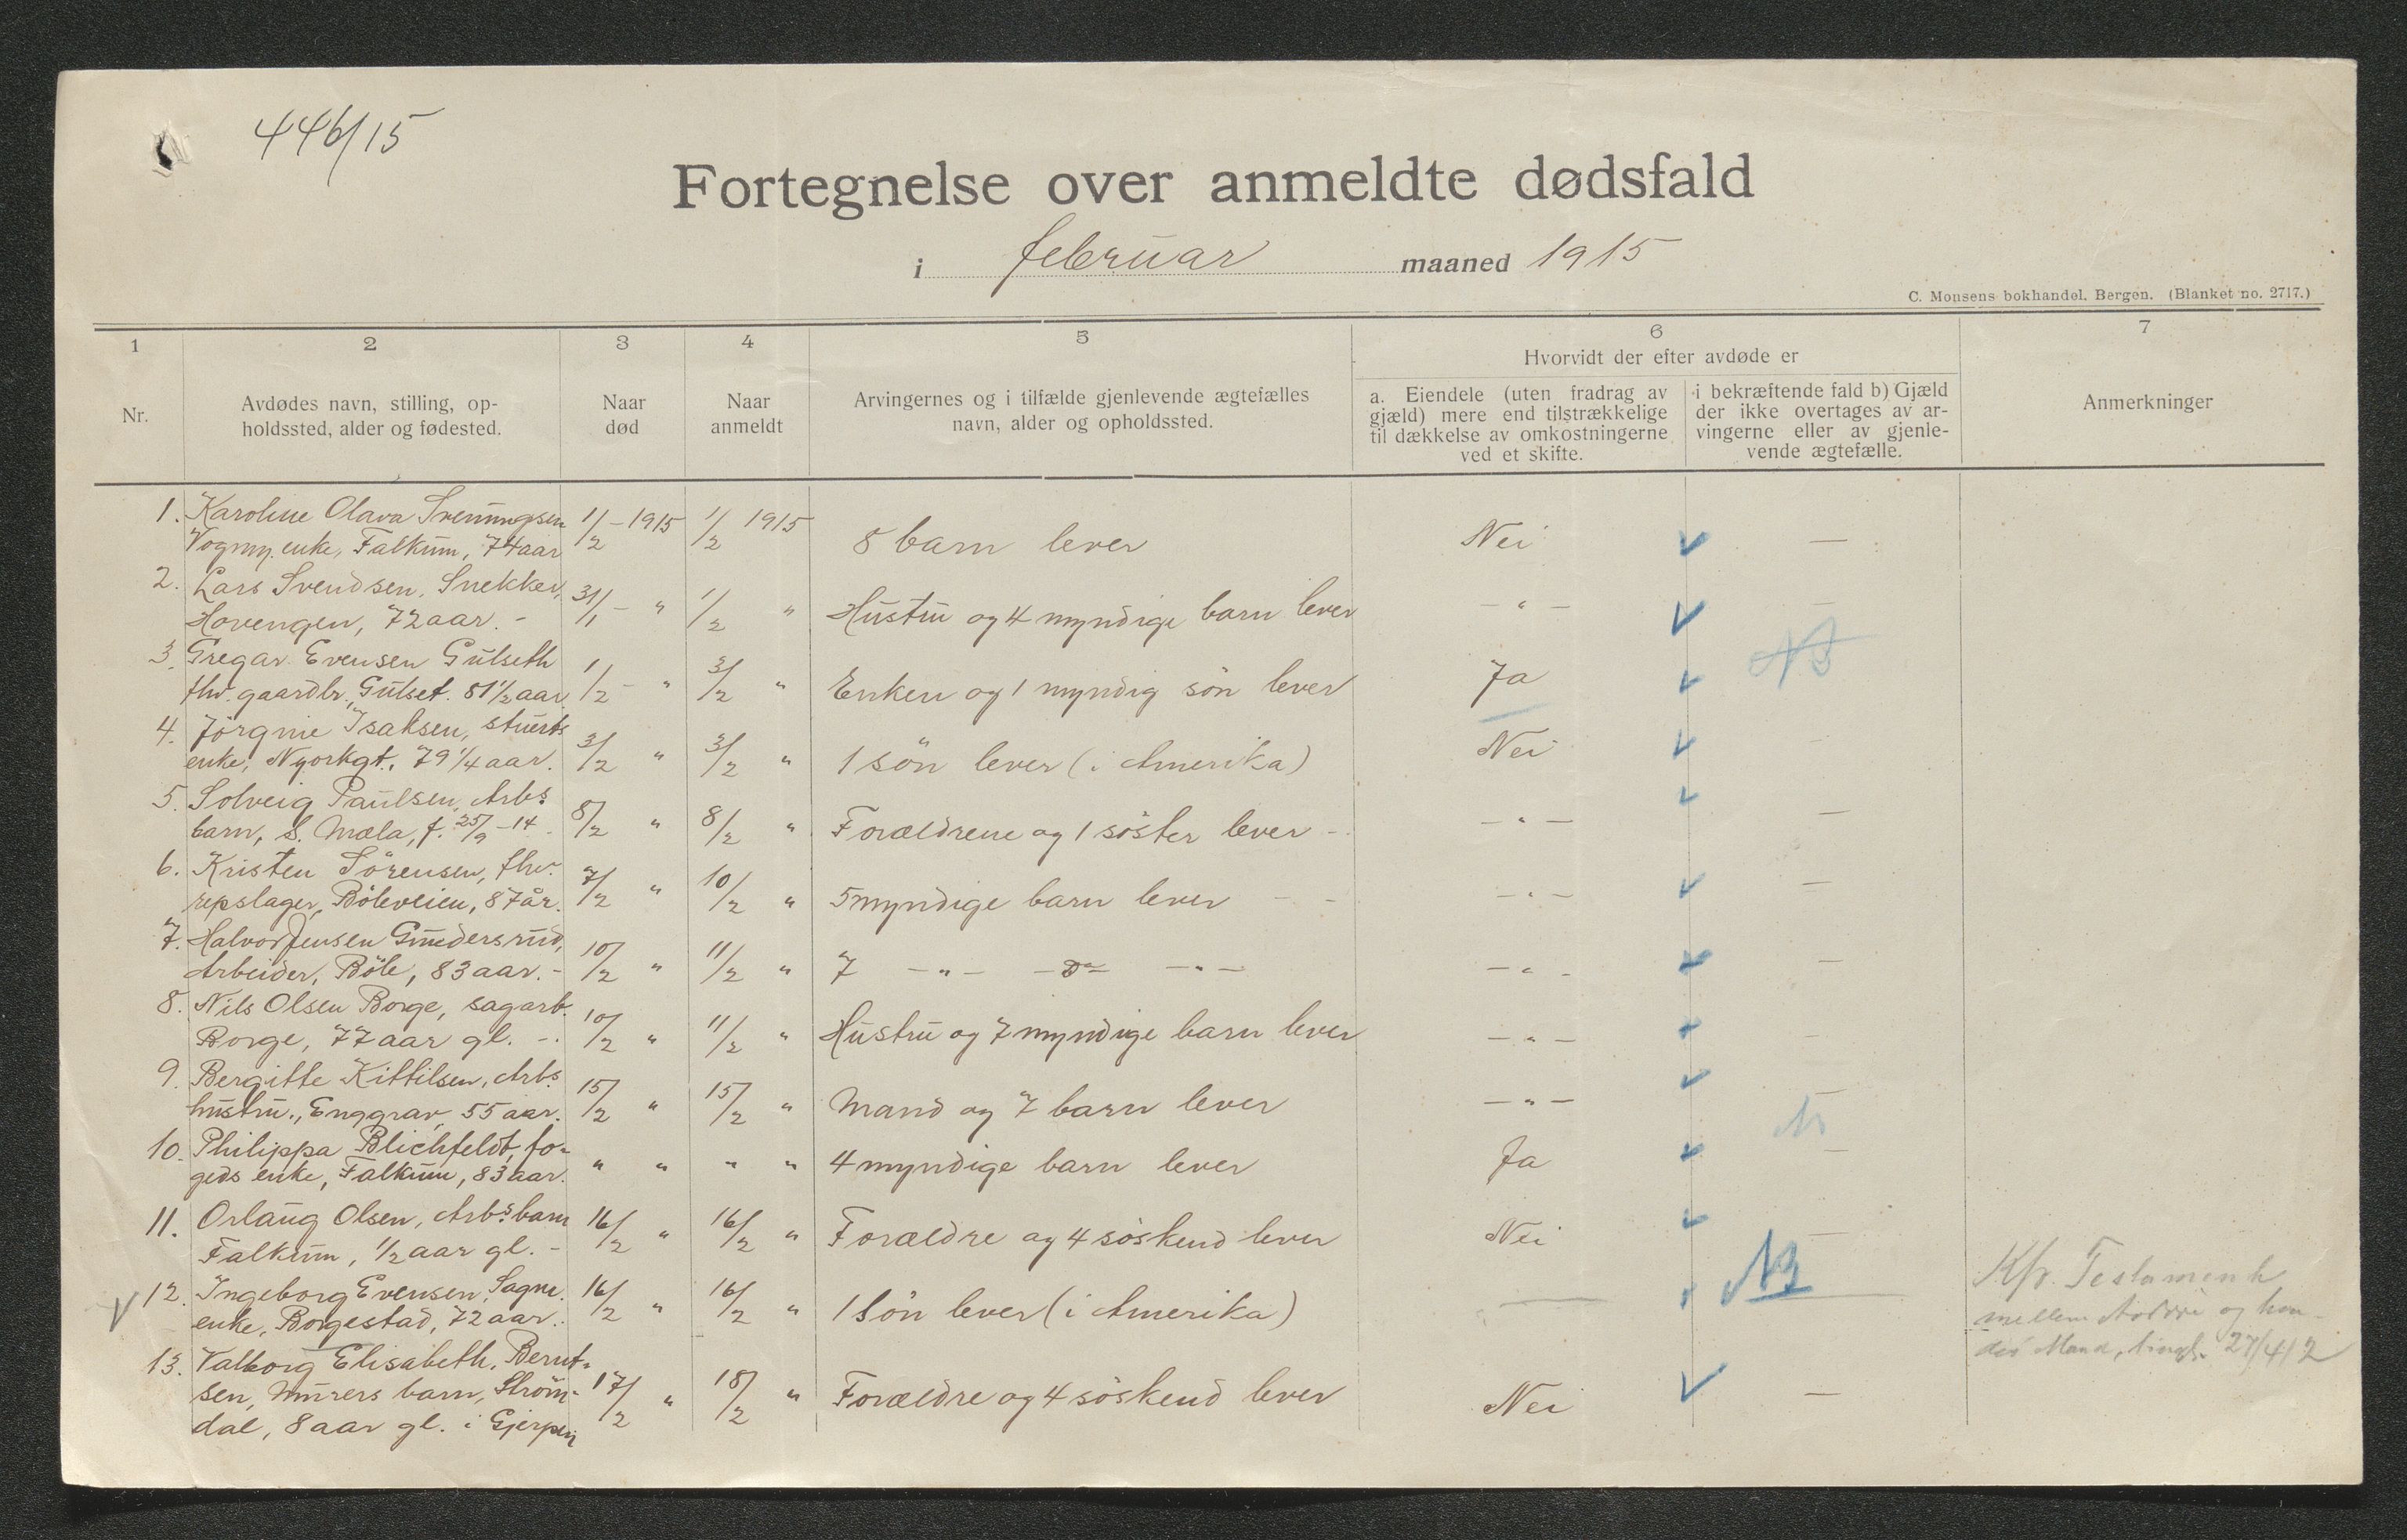 446/15
Fortegnelse over anmeldte dødsfald
i februar maaned 1915
C. Monsens bokhandel. Bergen. (Blanket no. 2717.)
1 2 3 4 5 6 7
Hvorvidt der efter avdøde er
Nr.
Avdødes navn, stilling, op-
holdssted, alder og fødested.
Naar
død
Naar
anmeldt
Arvingernes og i tilfælde gjenlevende ægtefælles
navn, alder og opholdssted.
a. Eiendele (uten fradrag av
gjæld) mere end tilstrækkelige
til dækkelse av omkostningerne
ved et skifte.
i bekræftende fald b) Gjæld
der ikke overtages av ar-
vingerne eller av gjenle-
vende ægtefælle.
Anmerkninger
1. Karoline Olava Svenningsen 1/2 - 1915 1/2 1915 8 barn lever Nei —
Vogmp. enke, Falkum, 74 aar
2. Lars Svendsen, Snekker, 31/1 - " 1/2 " Hustru og 4 myndige barn lever - " - —
Hovengen, 72 aar. -
3. Gregar Evensen Gulseth 1/2 - " 3/2 " Enken og 1 myndig søn lever Ja NB
fhv. gaardbr., Gulset. 81 1/2 aar
4. Jörgine Isaksen, stuerts 3/2 " 3/2 " 1 søn lever (i Amerika) Nei -
enke, Nyorkgt., 79 1/4 aar.
5. Solveig Paulsen, Arbs. 8/2 " 8/2 " Forældrene og 1 søster lever - - " - —
barn, S. Mæla, f. 25/9 -14 -
6. Kristen Sörensen, fhv. 7/2 " 10/2 " 5 myndige barn lever - - - " - —
repslager, Böleveien, 87 år.
7. Halvor Jensen Gundersrud, 10/2 " 11/2 " 7 - " - - " - - " - - " - —
Arbeider, Böle, 83 aar. -
8. Nils Olsen Borge, sagarb. 10/2 " 11/2 " Hustru og 7 myndige barn lever - " - —
Borge, 77 aar gl. -.
9. Bergitte Kittilsen, Arbs. 15/2 " 15/2 " Mand og 7 barn lever - " - —
hustru., Enggrav, 55 aar.
10. Philippa Blichfeldt, fo- " " " " 4 myndige barn lever Ja —
geds enke, Falkum, 83 aar.
11. Orlaug Olsen, Arbs. barn 16/2 " 16/2 " Forældre og 4 søskend lever Nei —
Falkum, 1/2 aar gl. -
12. Ingeborg Evensen, Sagm. 16/2 " 16/2 " 1 søn lever (i Amerika) — NB Kfr. Testament
enke, Borgestad, 72 aar. mellem og hen-
des Mand, tingl. 27/4 12
13. Valborg Elisabeth. Bernt- 17/2 " 18/2 " Forældre og 4 søskend lever Nei —
sen, Murers barn, Ström-
dal, 8 aar gl. i Gjerpen